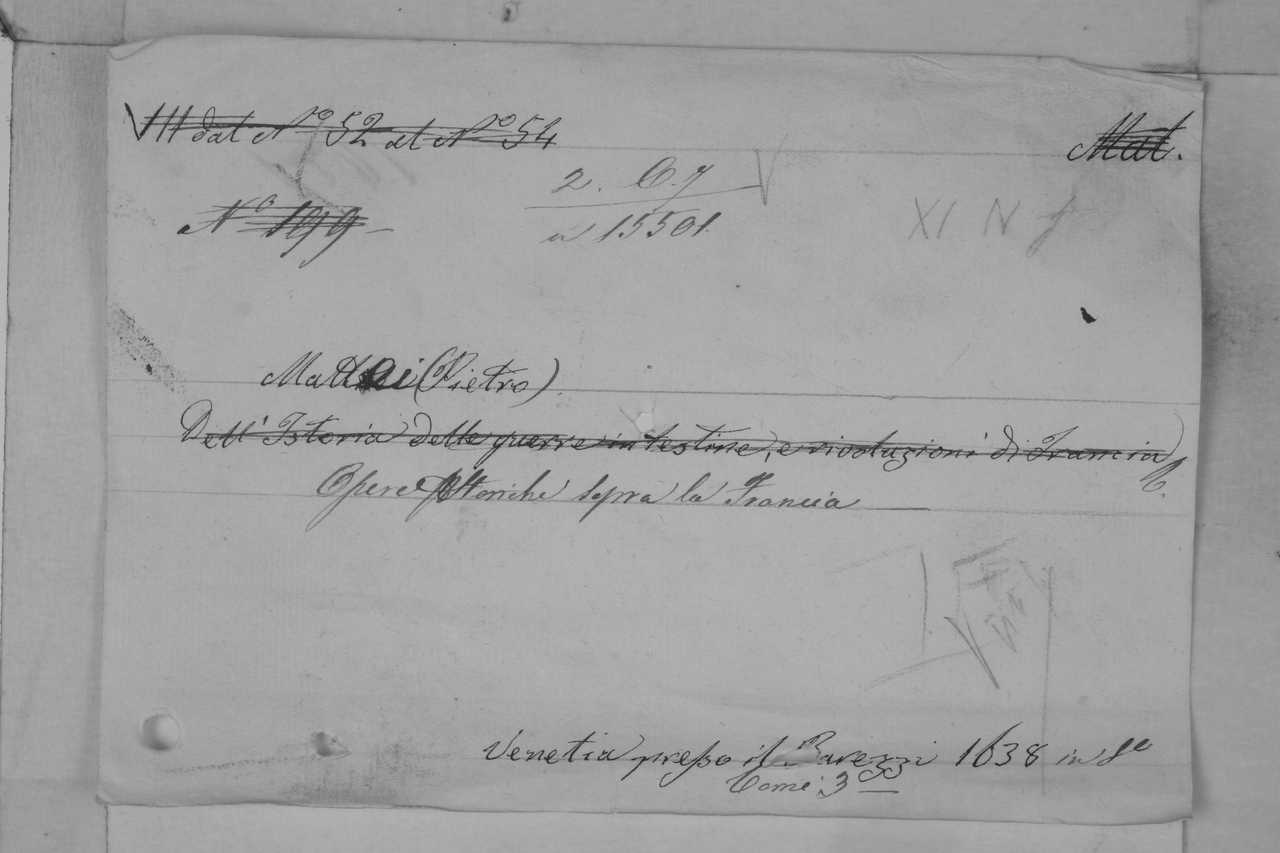 VIII dal N° 52 al N° 54
Mat.
2. 6. 7
N° 199
15501
XI N f
Mattei (Pietro)
Dell' Istoria delle guerre intestine, e rivoluzioni di Francia
Opere Storiche sopra la Francia
Venetia presso il Barezzi 1638 in 4°
Tomi 3